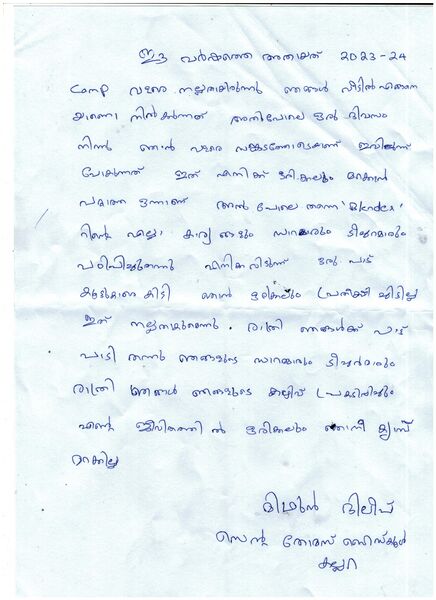 ഈ വർഷത്തെ അതായത് 2023-24
Camp വളരെ നല്ലതായിരുന്നു ഞങ്ങൾ വീട്ടിൽ എങ്ങനെ
യാണോ നിൽക്കുന്നത് അതുപോലെ ഒരു ദിവസം
നിന്നു ഞാൻ വളരെ സങ്കടത്തോടെയാണ് ഇവിടുന്ന്
പോകുന്നത് ഇത് എനിക്ക് ഒരിക്കലും മറക്കാൻ
പറ്റാത്ത ഒന്നാണ് അത് പോലെ തന്നെ 'Blender'
റിന്റെ എല്ലാ കാര്യങ്ങളും സാറുമാരും ടീച്ചറുമാരും
പഠിപ്പിച്ചുതന്നു എനിക്കവിടുന്ന് ഒരു പാട്
കൂട്ടുകാരെ കിട്ടി ഞാൻ ഒരിക്കലും പ്രതീക്ഷിച്ചിട്ടില്ല
ഇത് നല്ലതാകുമെന്ന്. രാത്രി ഞങ്ങൾക്ക് പാട്ട്
പാടി തന്നു ഞങ്ങളുടെ സാറുമാരും ടീച്ചർമാരും
രാത്രി ഞങ്ങൾ ഞങ്ങളുടെ കഴിവ് പ്രകടിപ്പിച്ചും
എന്റെ ജീവിതത്തിൽ ഒരിക്കലും ഞാനീ ക്യാമ്പ്
മറക്കില്ല
മിഥുൻ ദിലീപ്
സെന്റ് തോമസ് എച്ച്എസ്
കല്ലറ